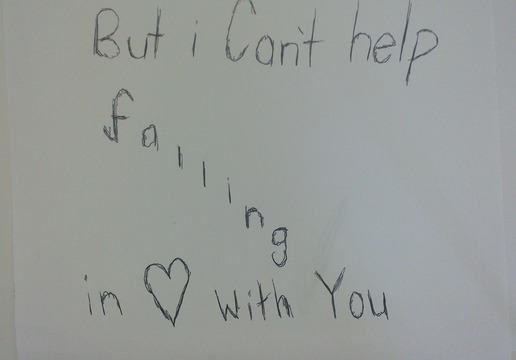 But i Can't help
falling
in ♡ with You